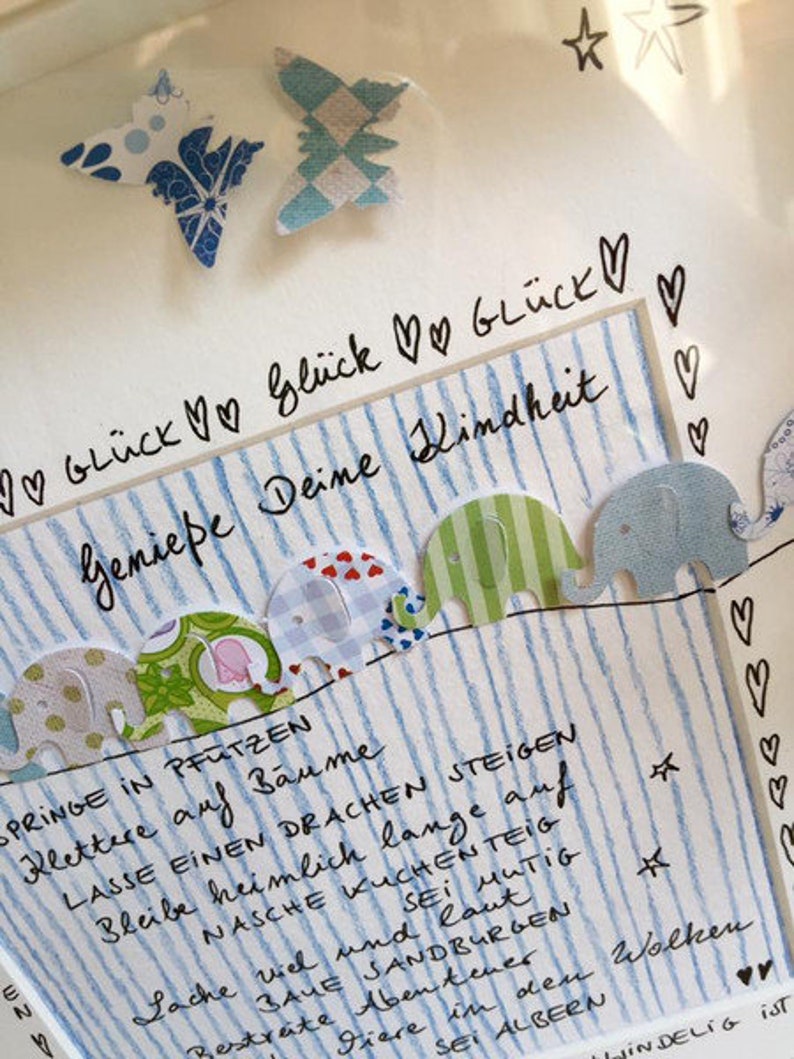 GLÜCK Glück GLÜCK
Genieße Deine Kindheit
SPRINGE IN PFÜTZEN
Klettere auf Bäume
LASSE EINEN DRACHEN STEIGEN
Bleibe heimlich lange auf
NASCHE KUCHENTEIG
SEI MUTIG
Lache viel und laut
BAUE SANDBURGEN
Bestreite Abenteuer
Tiere in den Wolken
SEI ALBERN
IST